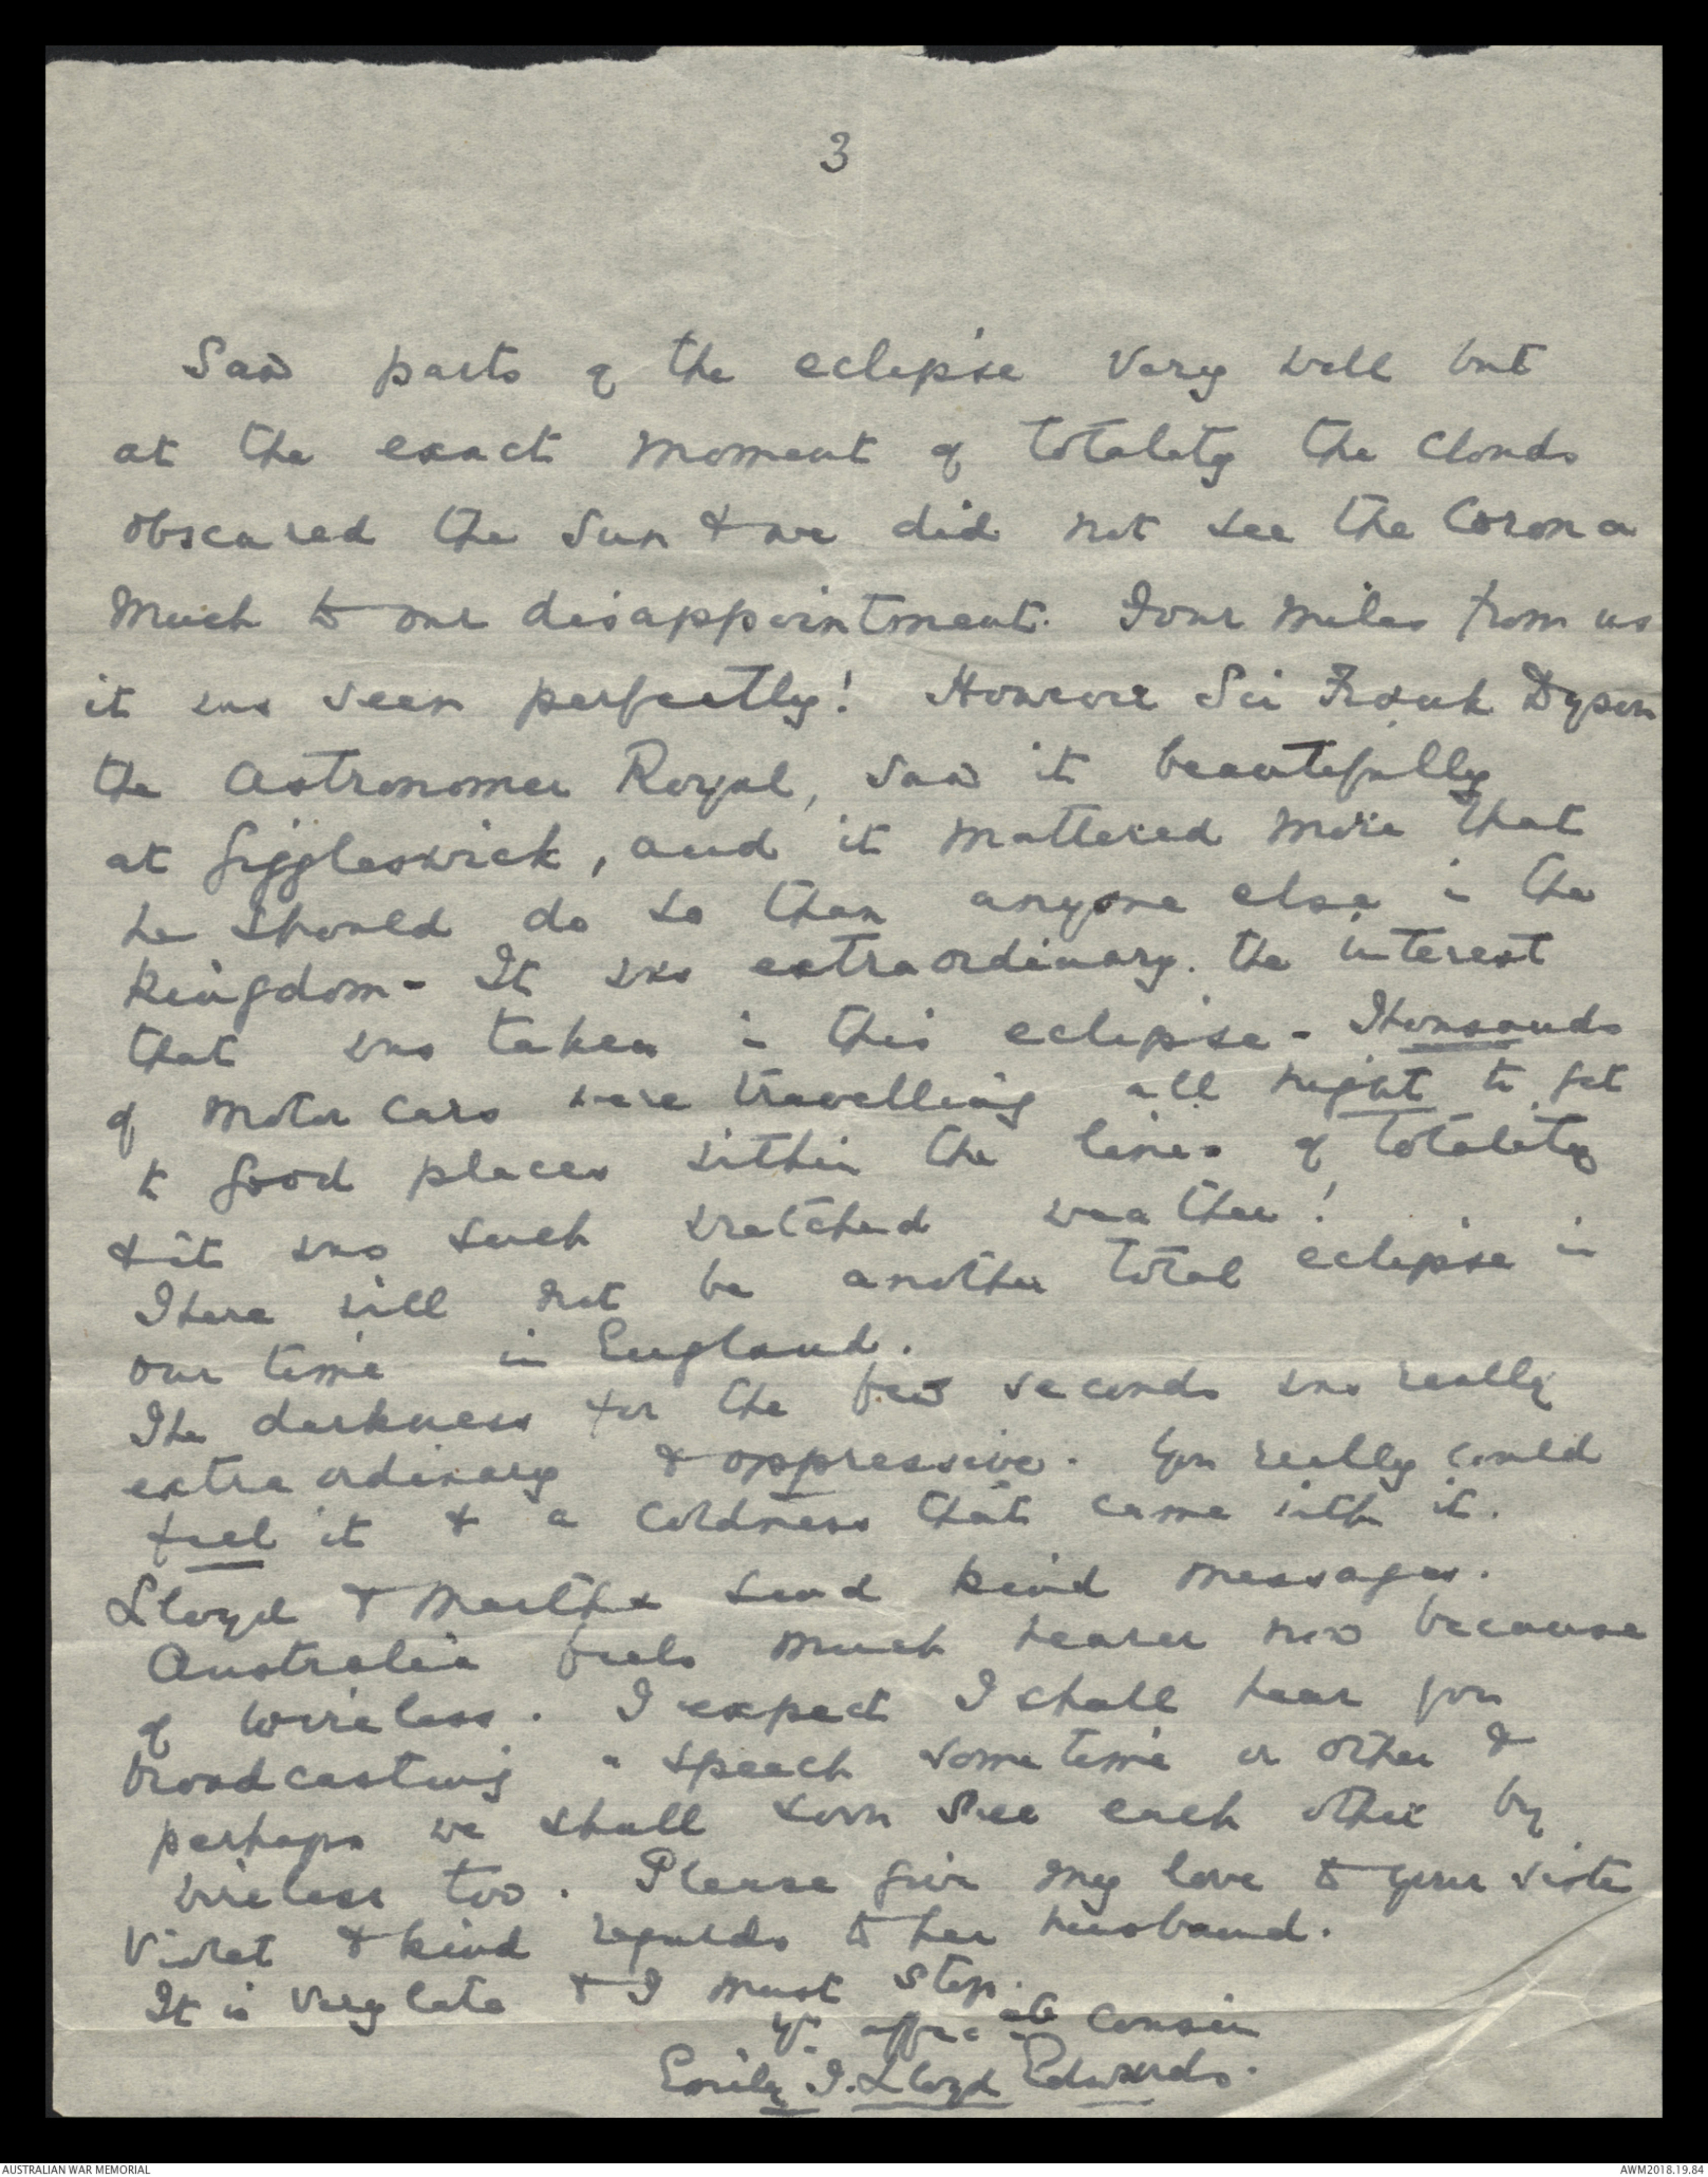 3
Saw parts of the eclipse very well but
at the exact moment of totality the clouds
obscured the Sun & we did not see the Corona
much to our disappointment. Four miles from us
it was seen perfectly! However Sir Frank Dyson
the Astronomer Royal, saw it beautifully
at Giggleswick, and it mattered more that
he should do so than anyone else in the
kingdom - It was extraordinary. the interest
that was taken in this eclipse - Thousands
of motor cars were travelling all night to get
to good places within the lines of totality
& it was such wretched weather!
There will not be another total eclipse in
our time in England.
The darkness for the few seconds was really
extraordinary & oppressive. You really could
feel it & a coldness that came with it.
Lloyd & send kind messages.
Australia feels much nearer now because
of wireless. I expect I shall hear you
broadcasting a speech sometime or other &
perhaps we shall soon see each other by
wireless too. Please give my love to your sister
Violet & kind regards to her husband.
It is very late & I must stop.
Yr affecate cousin
Emily I. Lloyd Edwards.
AUSTRALIAN WAR MEMORIAL
AWM2018.19.84